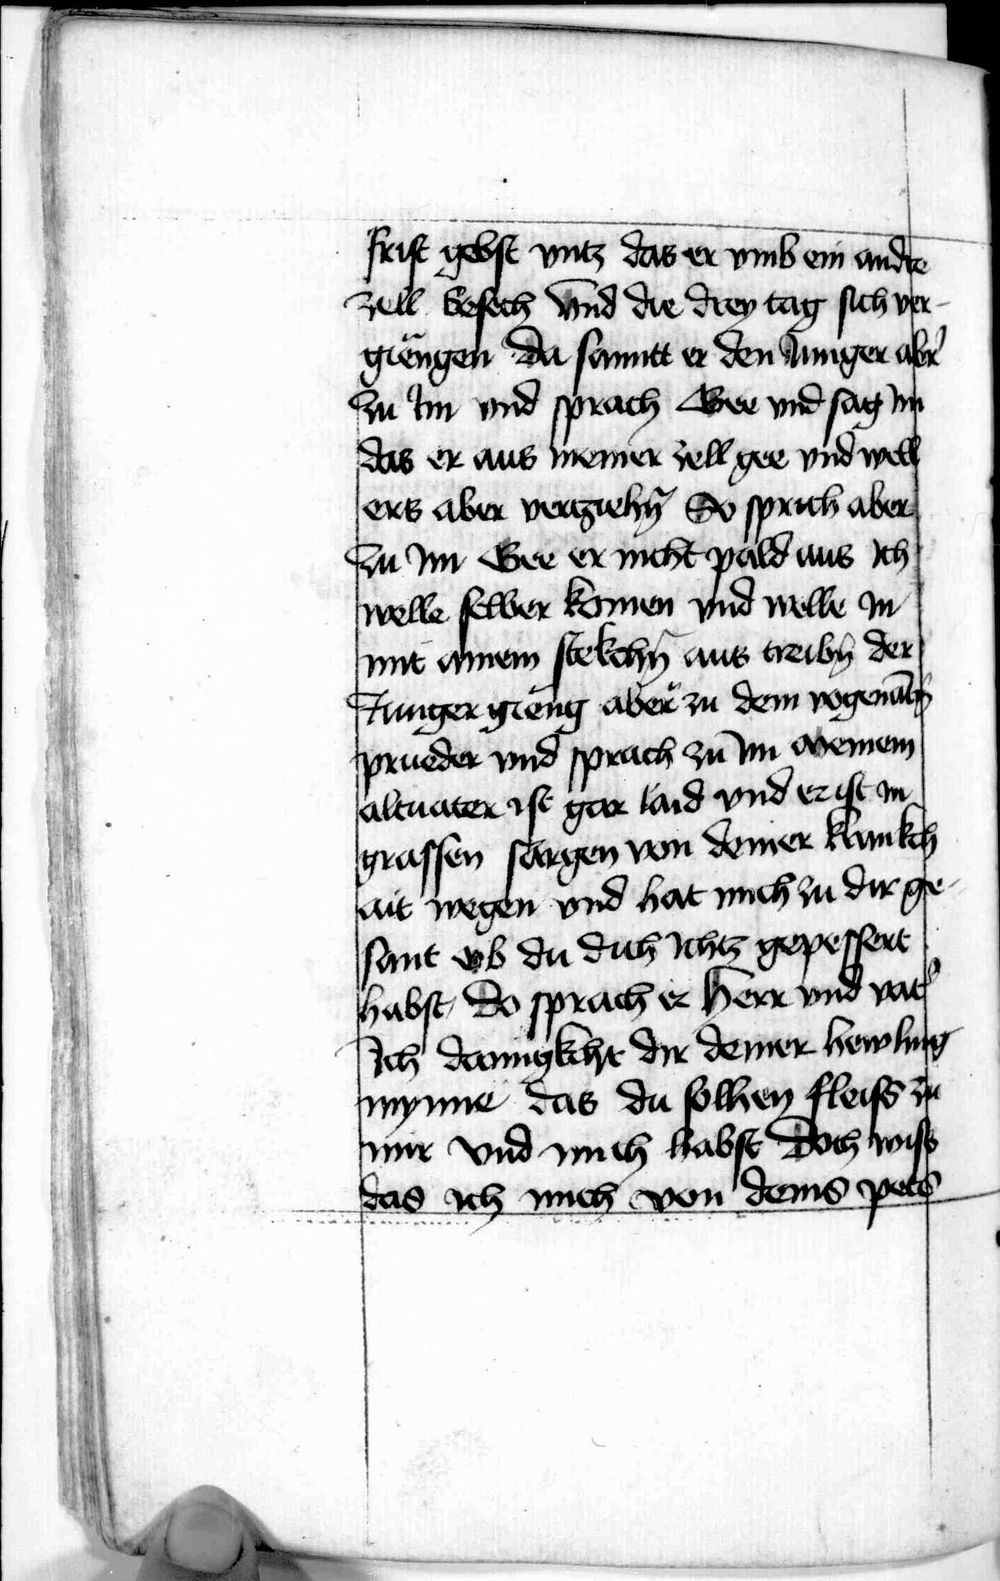 frist gebst vntz das er vmb ein andre
zell besech Vnd die drey tag sich ver-
giengen Da sanntt er den Junger aber
zu Im vnd sprach Gee vnd sag Im
das er aus meiner zell gee vnd well
ers aber verziehn̄ So sprich aber
zu Im Gee er nicht pald aus Ich
welle selber komen vnd welle in
mit ainem stekchn̄ aus treibn̄ der
Junger gieng aber zu dem vogenātn̄
prueder vnd sprach zu Im Meinem
altuater ist gar laid vnd er ist in
grassen sargen von deiner krankch
ait wegen vnd hat mich zu dir ge-
sant ob du dich ichtz gepessert
habst Do sprach er Herr vnd vat̉
Ich dannigkcht dir deiner hewling
mynne das du solhen fleiss zu
mir vnd mich habst Doch wiss
das ich mich von deins pets